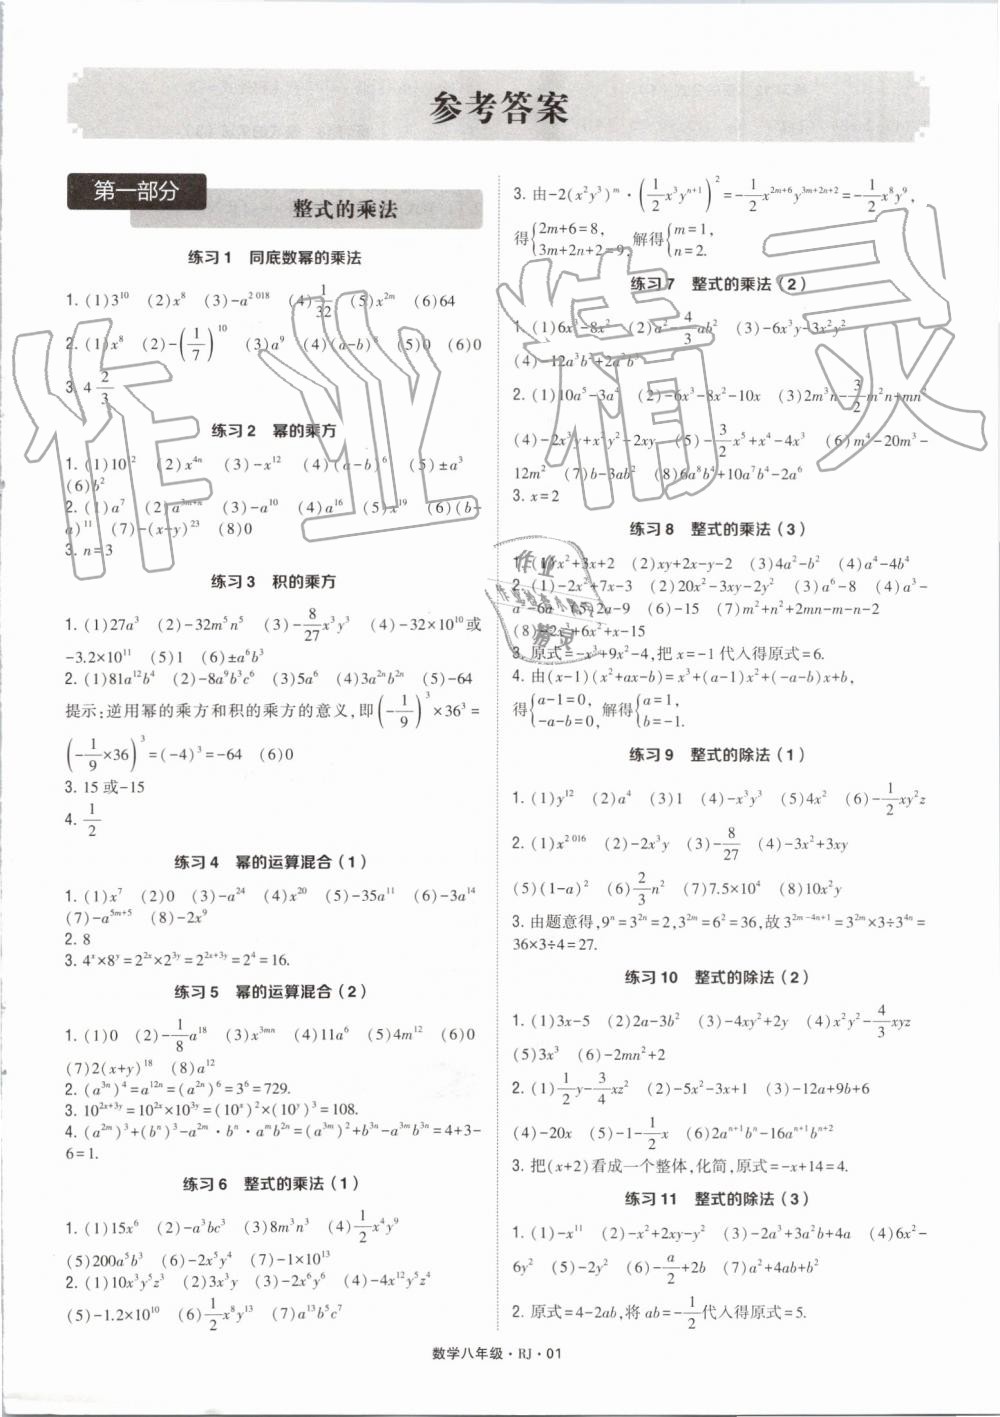 参考答案
第一部分
整式的乘法
练习1 同底数幂的乘法
1. (1)3¹⁰ (2)x⁸ (3)-a²⁰¹⁸ (4)1/32 (5)x²ᵐ (6)64
2. (1)x⁸ (2)-(1/7)¹⁰ (3)a⁹ (4)(a-b) (5)0 (6)0
3. 4 2/3
练习2 幂的乘方
1. (1)10 (2)x⁴ⁿ (3)-x¹² (4)(a-b)⁶ (5)±a³
(6)b²
2. (1)a⁷ (2)a³ᵐ⁺ⁿ (3)-a¹⁰ (4)a¹⁶ (5)x¹⁹ (6)(b-
a)¹¹ (7)-(x-y)²³ (8)0
3. n=3
练习3 积的乘方
1. (1)27a³ (2)-32m⁵n⁵ (3)-8/27x³y³ (4)-32×10¹⁰或
-3.2×10¹¹ (5)1 (6)±a⁶b³
2. (1)81a¹²b⁴ (2)-8a⁹b³c⁶ (3)5a⁶ (4)3a²ⁿb²ⁿ (5)-64
提示:逆用幂的乘方和积的乘方的意义,即(-1/9)³×36³=
(-1/9×36)³=(-4)³=-64 (6)0
3. 15或-15
4. 1/2
练习4 幂的运算混合(1)
1. (1)x⁷ (2)0 (3)-a²⁴ (4)x²⁰ (5)-35a¹¹ (6)-3a¹⁴
(7)-a⁵ᵐ⁺⁵ (8)-2x⁹
2. 8
3. 4ˣ×8ʸ=2²ˣ×2³ʸ=2²ˣ⁺³ʸ=2⁴=16.
练习5 幂的运算混合(2)
1. (1)0 (2)-1/8a¹⁸ (3)x³ᵐⁿ (4)11a⁶ (5)4m¹² (6)0
(7)2(x+y)¹⁸ (8)a¹²
2. (a³ⁿ)⁴=a¹²ⁿ=(a²ⁿ)⁶=3⁶=729.
3. 10²ˣ⁺³ʸ=10²ˣ×10³ʸ=(10ˣ)²×(10ʸ)³=108.
4. (a²ᵐ)³+(bⁿ)³-a²ᵐ·bⁿ·aᵐb²ⁿ=(a³ᵐ)²+b³ⁿ-a³ᵐb³ⁿ=4+3-
6=1.
练习6 整式的乘法(1)
1. (1)15x⁶ (2)-a³bc³ (3)8m³n³ (4)1/2x⁴y⁹
(5)200a⁵b³ (6)-2x⁵y⁴ (7)-1×10¹³
2. (1)10x³y⁵z³ (2)3x³y (3)-2x⁶y⁶ (4)-4x¹²y⁵z⁴
(5)-1.2×10¹⁰ (6)1/2x⁸y¹³ (7)a¹³b⁵c⁷
3. 由-2(x²y³)ᵐ·(1/2x³yⁿ⁺¹)²=-1/2x²ᵐ⁺⁶y³ᵐ⁺²ⁿ⁺²=-1/2x⁸y⁹,
得{2m+6=8, 3m+2n+2=9, 解得{m=1, n=2.
练习7 整式的乘法(2)
1. (1)6x³-8x² (2)a²-4/3ab² (3)-6x³y-3x²y²
(4)-12a³b²+2a²b³
2. (1)10a⁵-3a⁴ (2)-6x³-8x²-10x (3)2m³n-3/2m²n+mn²
(4)-2x³y+x²y²-2xy (5)-3/2x⁵+x⁴-4x³ (6)m⁴-20m³-
12m² (7)b-3ab² (8)6a⁸b⁴+10a⁷b⁴-2a⁶
3. x=2
练习8 整式的乘法(3)
1. (1)x²+3x+2 (2)xy+2x-y-2 (3)4a²-b² (4)a⁴-4b⁴
2. (1)-2x²+7x-3 (2)20x²-3xy-2y² (3)a⁶-8 (4)a³-
a²-6a (5)2a-9 (6)-15 (7)m²+n²+2mn-m-n-2
(8)-2x³+6x²+x-15
3. 原式=-x³+9x²-4,把x=-1代入得原式=6.
4. 由(x-1)(x²+ax-b)=x³+(a-1)x²+(-a-b)x+b,
得{a-1=0, -a-b=0, 解得{a=1, b=-1.
练习9 整式的除法(1)
1. (1)y¹² (2)a⁴ (3)1 (4)-x³y³ (5)4x² (6)-1/2xy²z
2. (1)x²⁰¹⁶ (2)-2x³y (3)-8/27 (4)-3x²+3xy
(5)(1-a)² (6)2/3n² (7)7.5×10⁴ (8)10x²y
3. 由题意得,9ⁿ=3²ⁿ=2,3²ᵐ=6²=36,故3²ᵐ⁻⁴ⁿ⁺¹=3²ᵐ×3÷3⁴ⁿ=
36×3÷4=27.
练习10 整式的除法(2)
1. (1)3x-5 (2)2a-3b² (3)-4xy²+2y (4)x²y²-4/3xyz
(5)3x³ (6)-2mn²+2
2. (1)1/2y-3/4xz² (2)-5x²-3x+1 (3)-12a+9b+6
(4)-20x (5)-1-1/2x (6)2aⁿ⁺¹bⁿ-16aⁿ⁺¹bⁿ⁺²
3. 把(x+2)看成一个整体,化简,原式=-x+14=4.
练习11 整式的除法(3)
1. (1)-x¹¹ (2)-x²+2xy-y² (3)-2a³+3a²b+4a (4)6x²-
6y² (5)-2y² (6)-a/2+2b (7)a²+4ab+b²
2. 原式=4-2ab,将ab=-1/2代入得原式=5.
数学八年级·RJ·01
作业精灵
作业
精灵